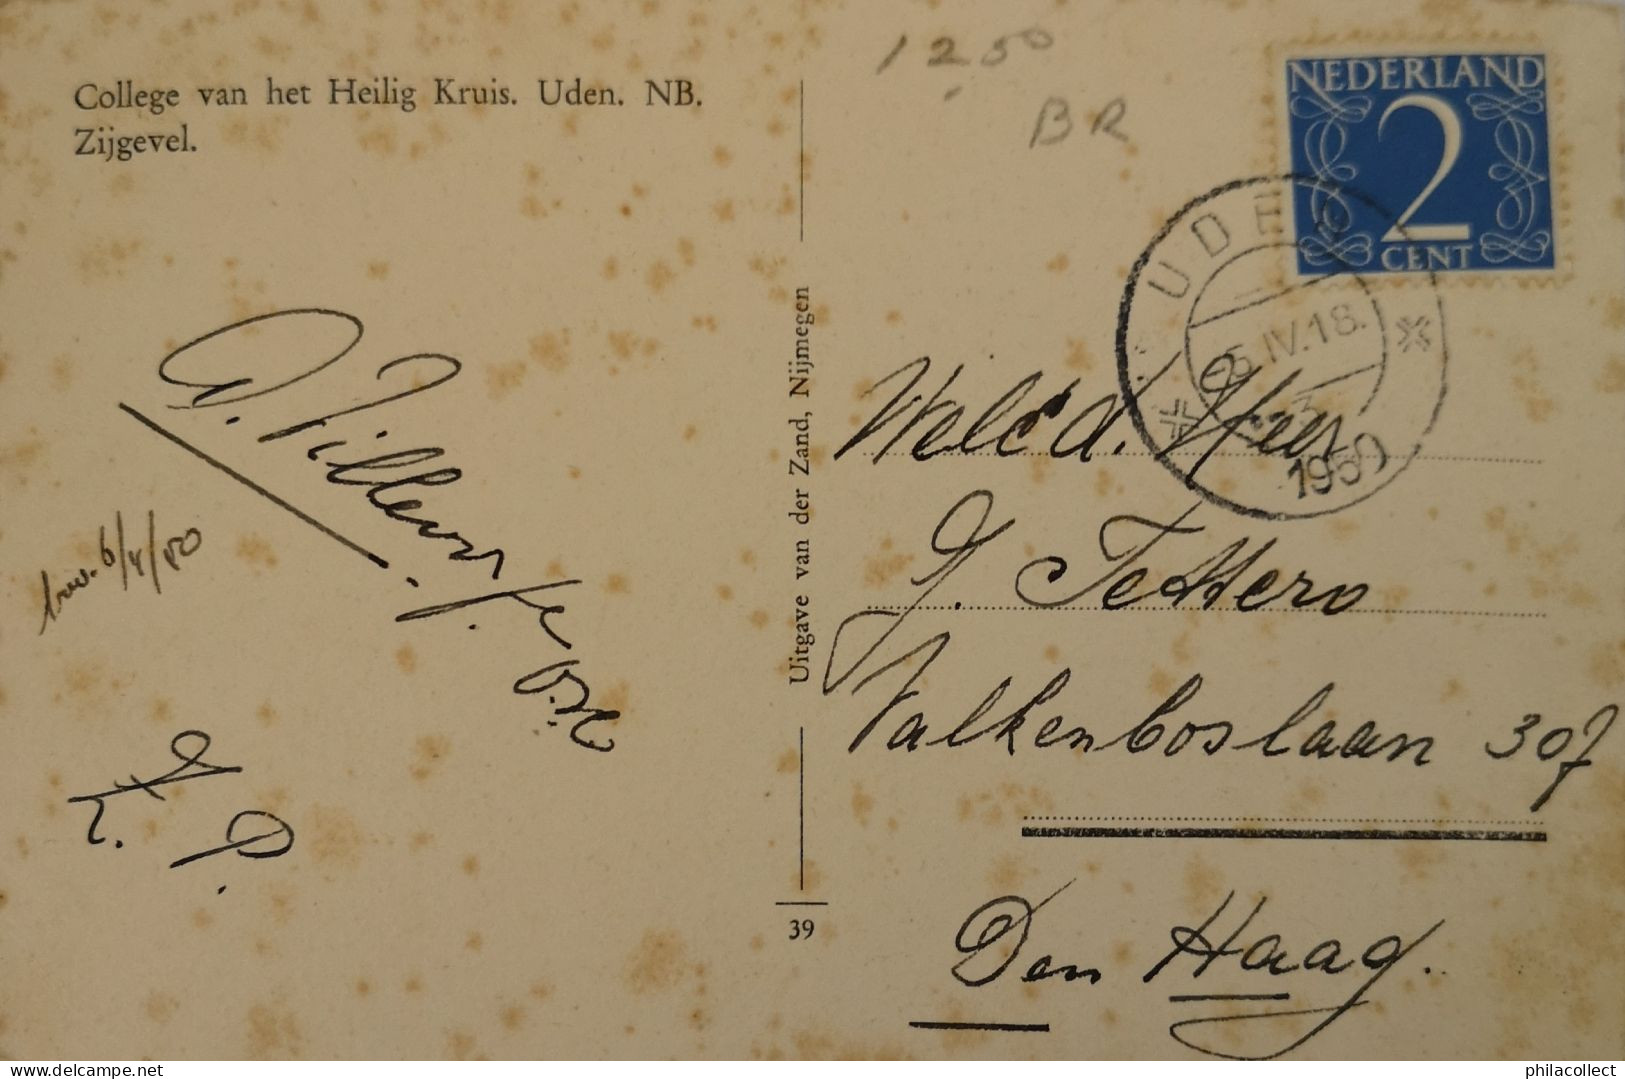 College van het Heilig Kruis. Uden. NB.
Zijgevel.
12 50
BR
NEDERLAND
2
CENT
UDEN
-5.IV.18.
1950
6/4/50
Uitgave van der Zand, Nijmegen
39
WelEd. Heer
J. Tettero
Valkenboslaan 307
Den Haag.
philacollect
www.delcampe.net